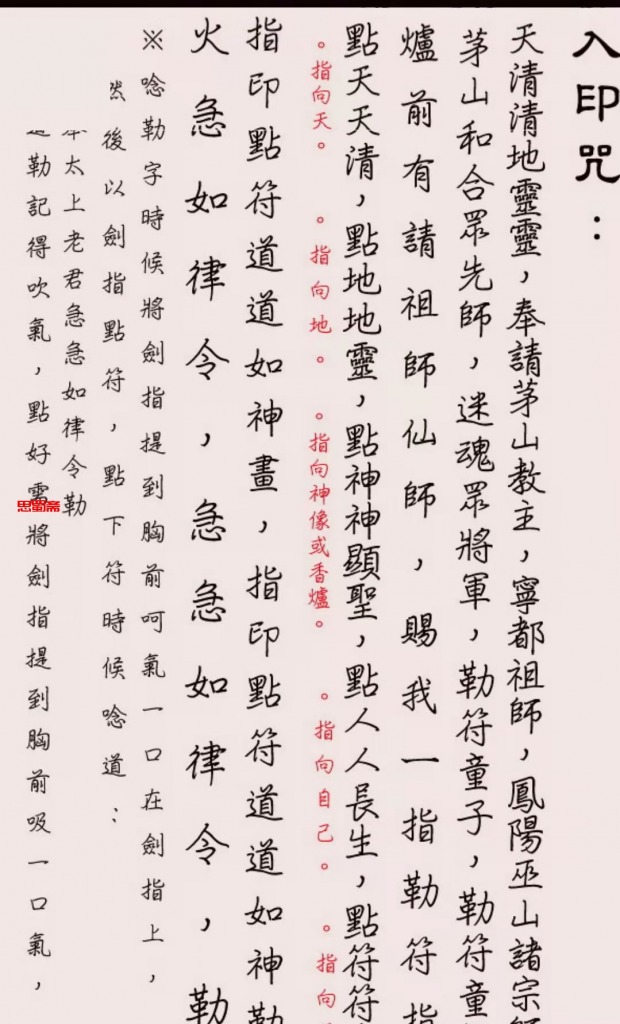 入印咒：
天清清地靈靈，奉請茅山教主，寧都祖師，鳳陽巫山諸宗師
茅山和合眾先師，迷魂眾將軍，勒符童子，勒符童
爐前有請祖師仙師，賜我一指勒符指
點天天清，點地地靈，點神神顯聖，點人人長生，點符符
。指向天。 。指向地。 。指向神像或香爐。 。指向自己。 。指向
指印點符道道如神畫，指印點符道道如神勒
火急如律令，急急如律令，勒
※唸勒字時候將劍指提到胸前呵氣一口在劍指上，
然後以劍指點符，點下符時候唸道：
太上老君急急如律令勒
勒記得吹氣，點好需將劍指提到胸前吸一口氣，
思蜀斋